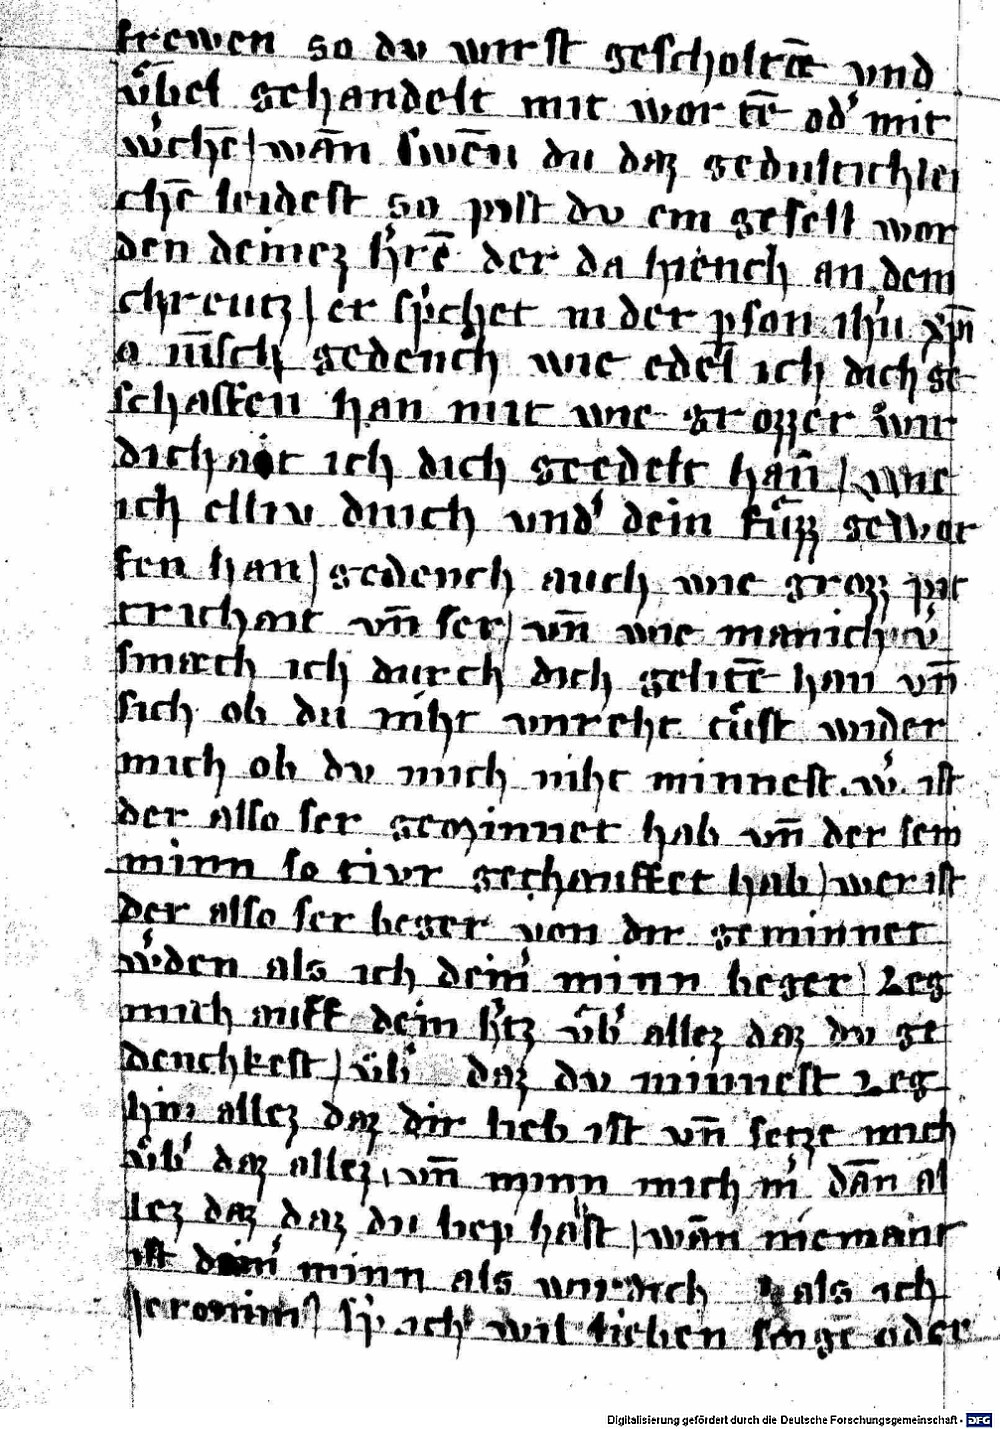 frewen so du wirst gescholtē und
v̊bel gehandelt mit wortē od' mit
w'chē / wān swēn du daz gedultichlei
chē leidest so pist du ein gesell wor
den deinez h'rē der da hiench an dem
chreutz / er sp'chet in der pson ihū xp̄i
o m̄sch gedench wie edel ich dich ge
schaffen han mit wie grozzer wir
dichait ich dich geedelt han / wie
ich elliu dinch und' dein fuͤzz gewor
fen han / gedench auch wie groz pit
trichait vn̄ ser / vn̄ wie manich v'
smæch ich durch dich gelitē han vn̄
sich ob du niht vnreht tuͤst wider
mich ob du mich niht minnest. w' ist
der also ser geminnet hab vn̄ der sein
minn so tivr gechauffet hab / wer ist
der also ser beger von dir geminnet
w'den als ich dein' minn beger / Leg
mich auff dein h'tz v̊b' allez daz du ge
denchkest / v̊b' daz du minnest Leg
hin allez daz dir lieb ist vn̄ setze mich
v̊b' daz allez, vn̄ minn mich m' dān al
lez daz daz du liep hast / wān niemant
ist dein' minn als wirdich als ich
Jeronim9 sp' ich wil lieben sage oder
Digitalisierung gefördert durch die Deutsche Forschungsgemeinschaft - DFG